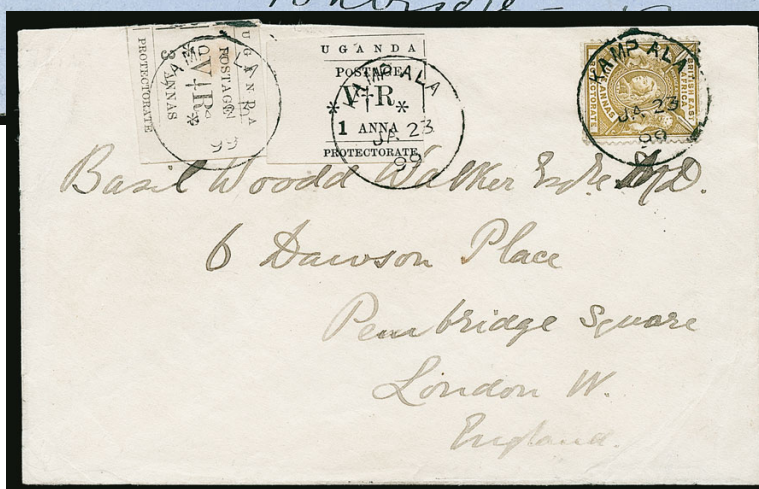 UGANDA
POSTAGE
V R
3 ANNAS
PROTECTORATE
UGANDA
POSTAGE
* V R *
1 ANNA
PROTECTORATE
KAMPALA
JA 23
99
KAMPALA
JA 23
99
BRITISH EAST
AFRICA
PROTECTORATE
Basil Woodd Walker Esqre M.D.
6 Dawson Place
Pembridge Square
London W.
England.